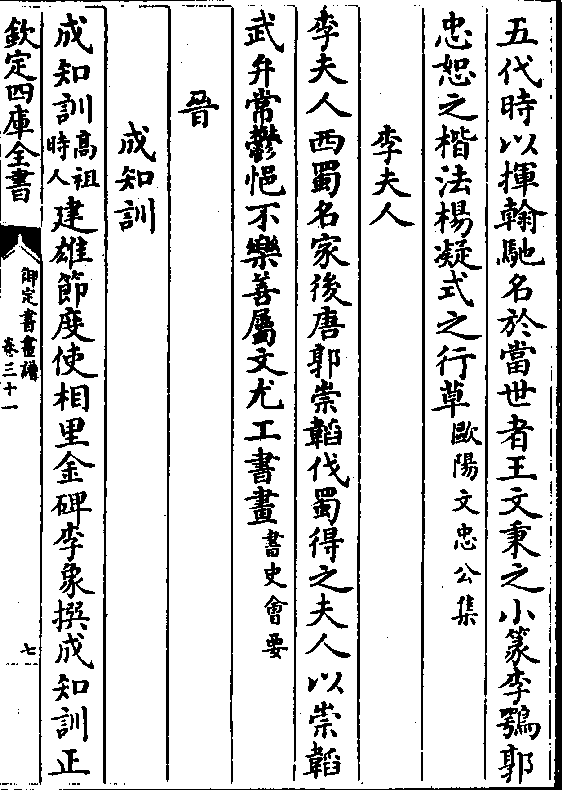 五代時以揮翰馳名於當世者王文秉之小篆李鶚郭
忠恕之楷法楊凝式之行草歐陽文忠公集
李夫人
李夫人西蜀名家後唐郭崇韜伐蜀得之夫人以崇韜
武弁常鬱悒不樂善屬文尤工書畫書史會要
晉
成知訓
成知訓高祖時人建雄節度使相里金碑李象撰成知訓正
欽定四庫全書
御定書畫譜
卷三十一
七